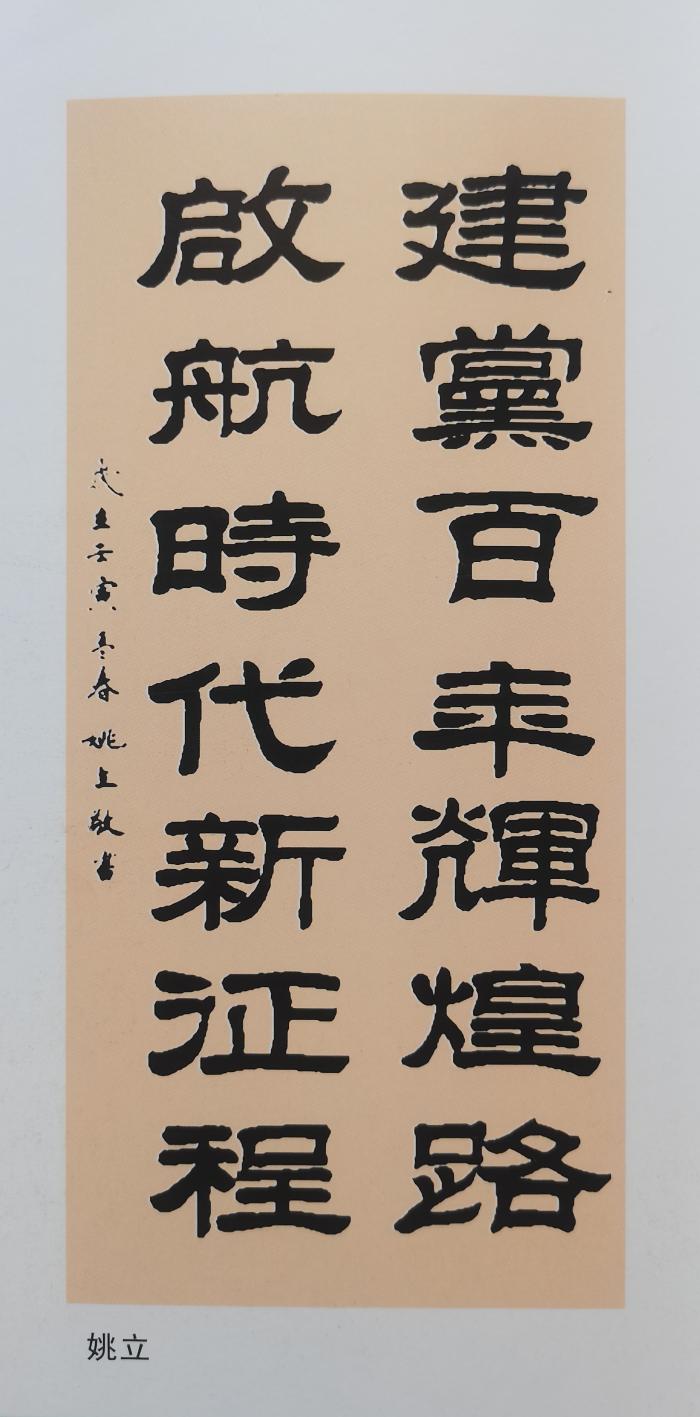 建黨百年輝煌路
啟航時代新征程
歲在壬寅孟春姚立敬書
姚立